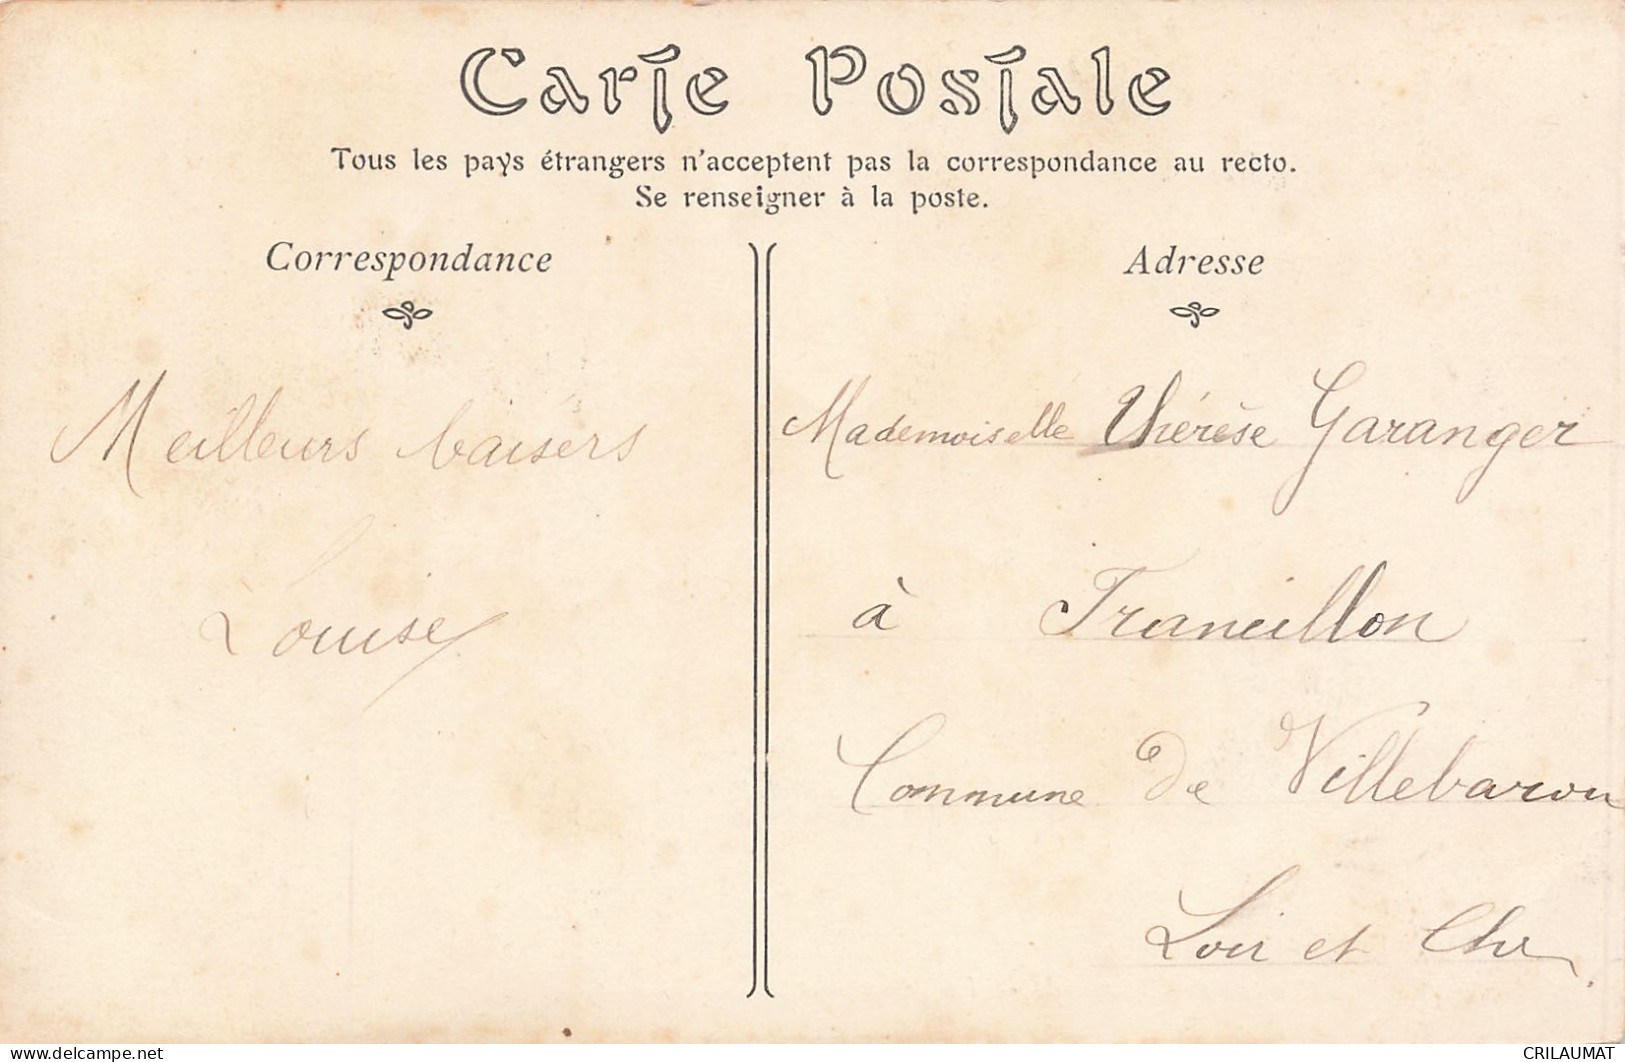 Carte Postale
Tous les pays étrangers n'acceptent pas la correspondance au recto.
Se renseigner à la poste.
Correspondance
Meilleurs baisers
Louise
Adresse
Mademoiselle Thérèse Garanger
à Francillon
Commune de Villebarou
Loir et Cher
delcampe.net
CRILAUMAT